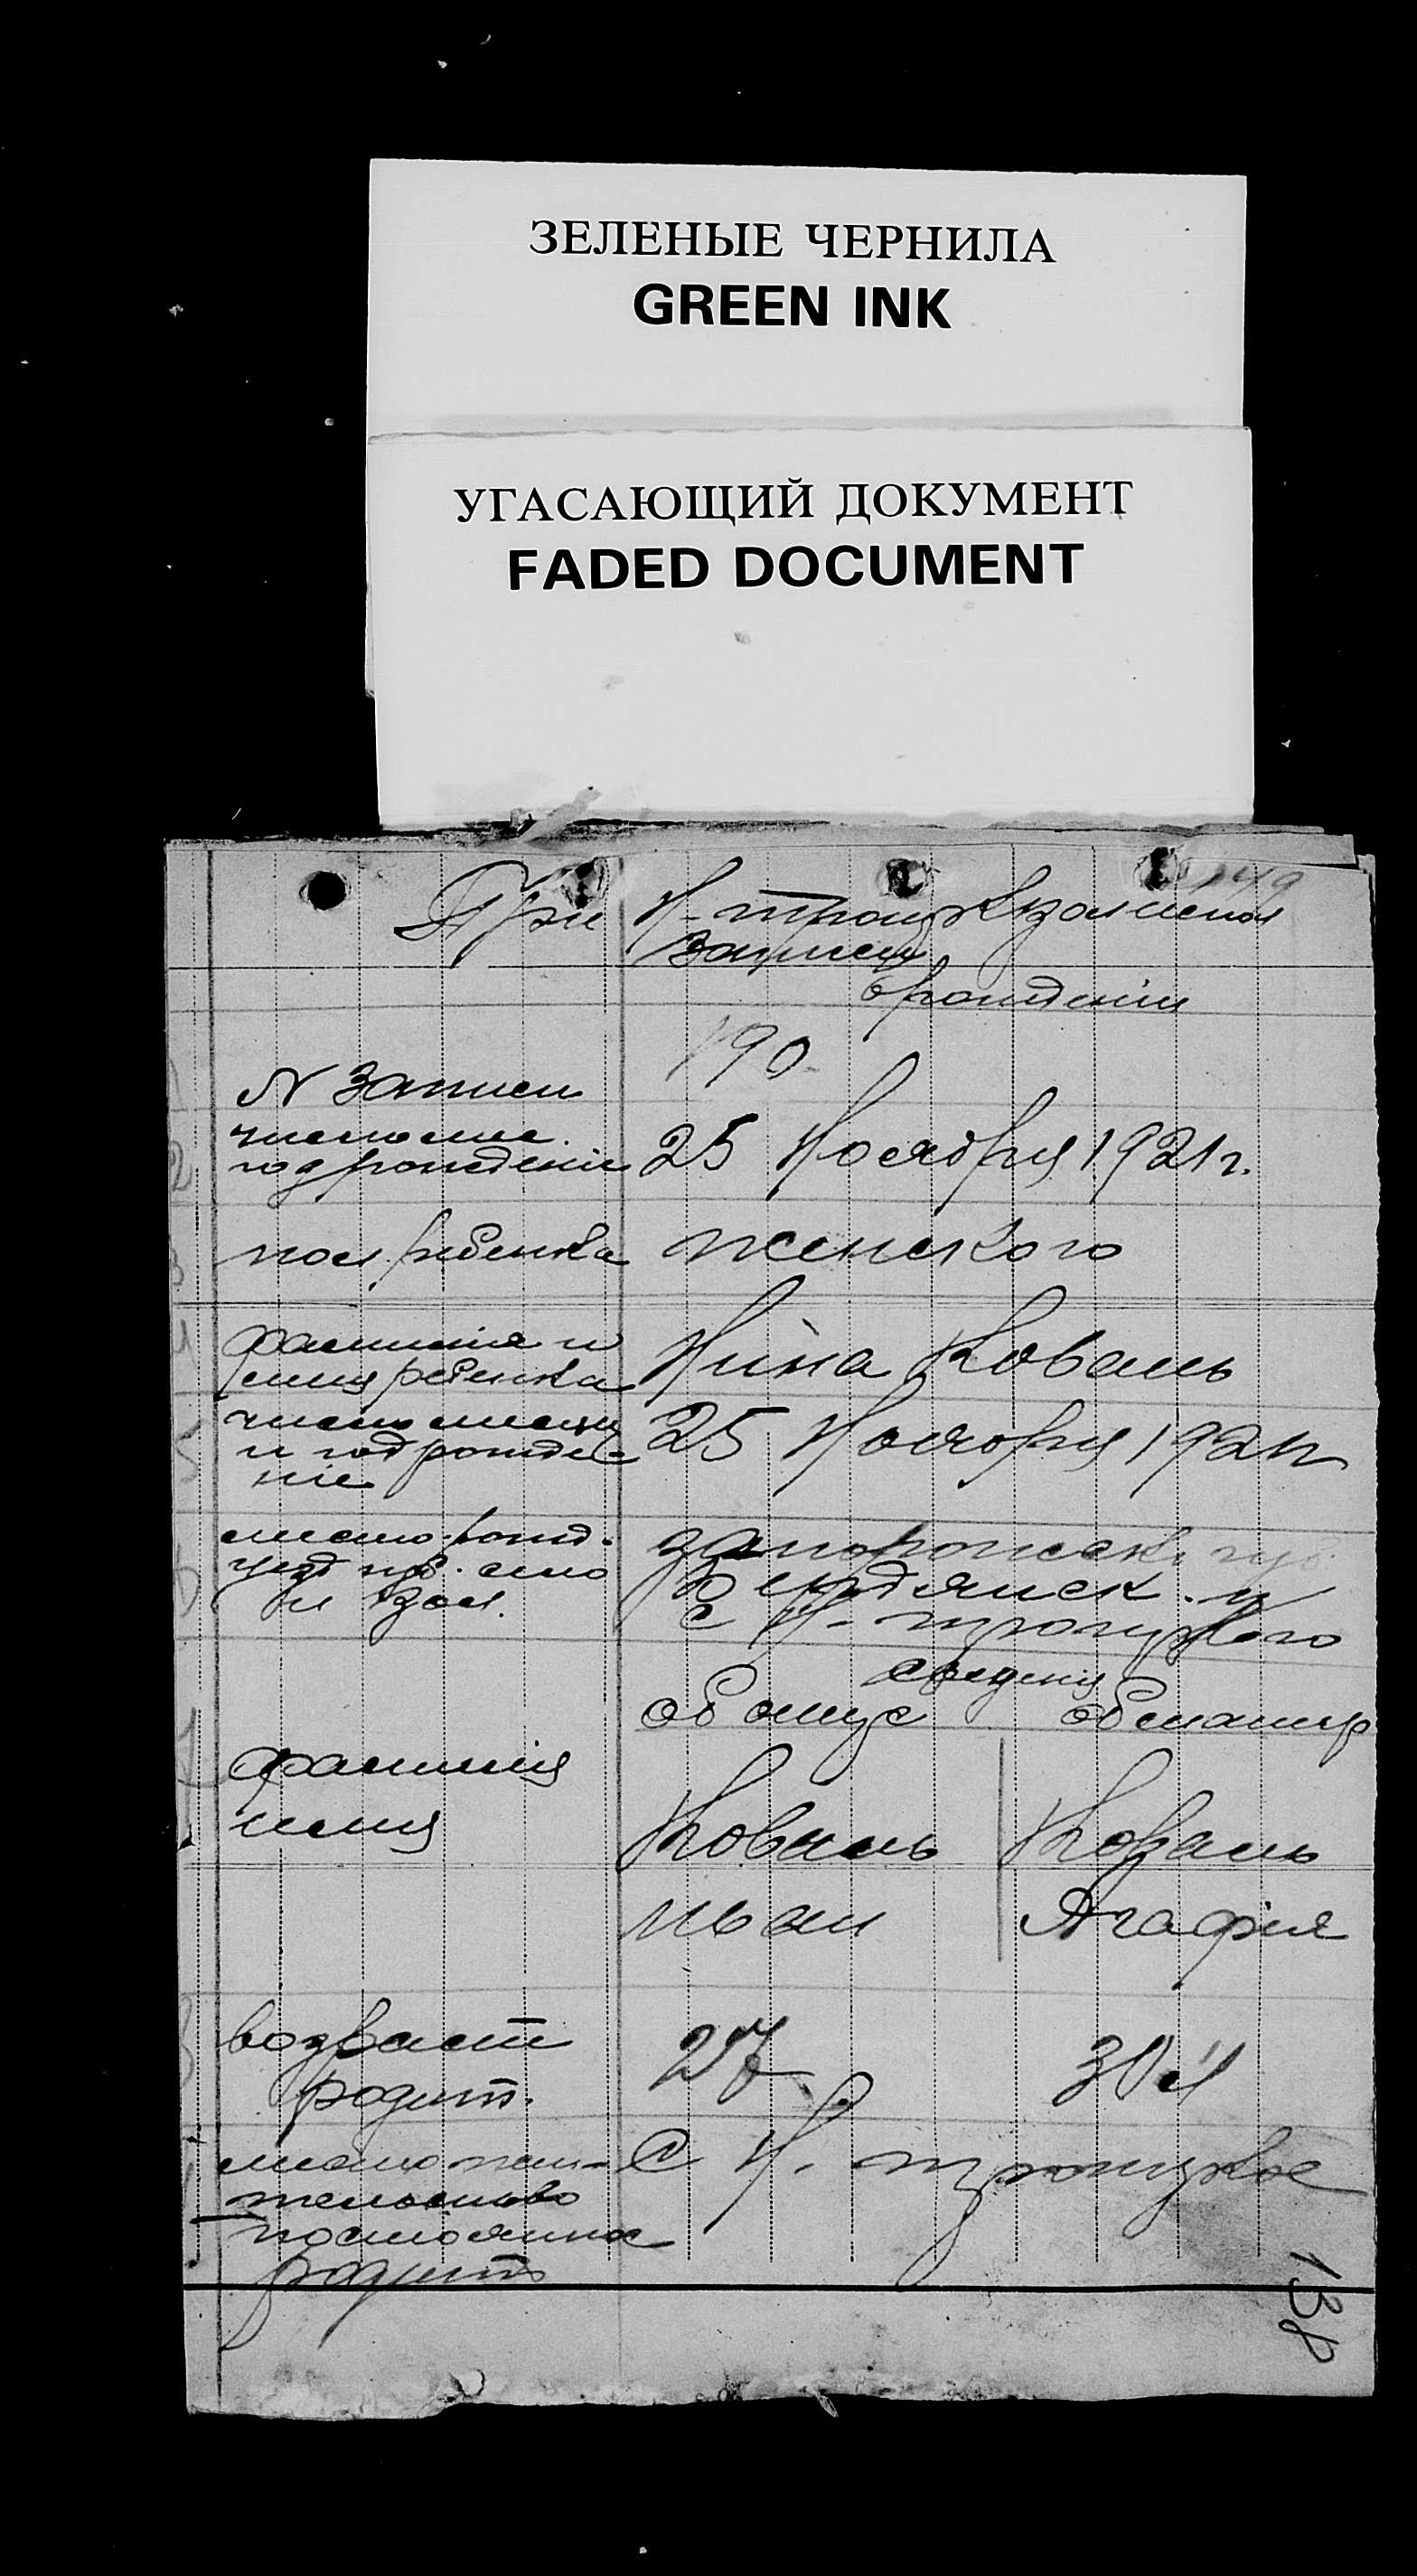 ЗЕЛЕНЫЕ ЧЕРНИЛА
GREEN INK
УГАСАЮЩИЙ ДОКУМЕНТ
FADED DOCUMENT
149
При Н-троицк
записи
о рождении
190
N записи
год рождение 25 Ноября 1921 г.
пол ребенка женского
фамилия и
имя ребенка Нина Коваль
число месяц
и год рожде-
ние 25 Ноября 1921
место рожд.
уезд губ. село
и вол.
запорожск. губ.
Бердянск. у
с Н-троицкого
об отце
фамилия
имя
Коваль Коваль
Иван Агафия
возраст
родит.
27 30
место жи-
тельство
постоянное
родит
с Н. троицкое
138